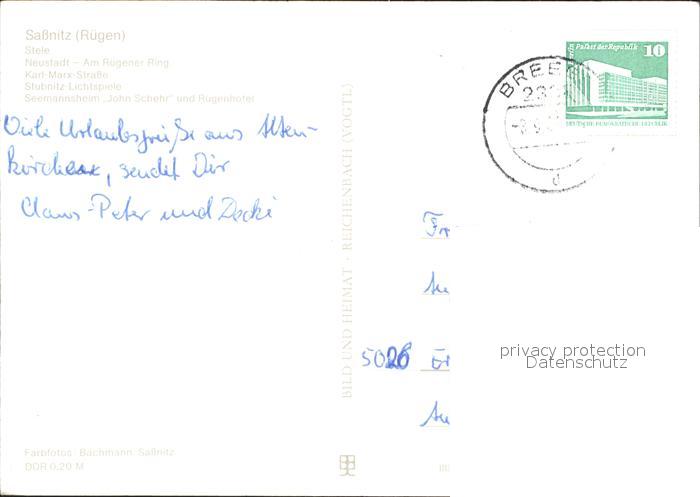 Saßnitz (Rügen)
Stele
Neustadt – Am Rügener Ring
Karl-Marx-Straße
Stubnitz-Lichtspiele
Seemannsheim „John Schehr“ und Rügenhotel
Viele Urlaubsgrüße aus Alten-
kirchen, sendet Dir
Claus-Peter und
Farbfotos: Bachmann, Saßnitz
DDR 0,20 M
BILD UND HEIMAT · REICHENBACH (VOGTL)
Berlin Palast der Republik 10
DEUTSCHE DEMOKRATISCHE REPUBLIK
BREE
d
Fr
5026
privacy protection
Datenschutz